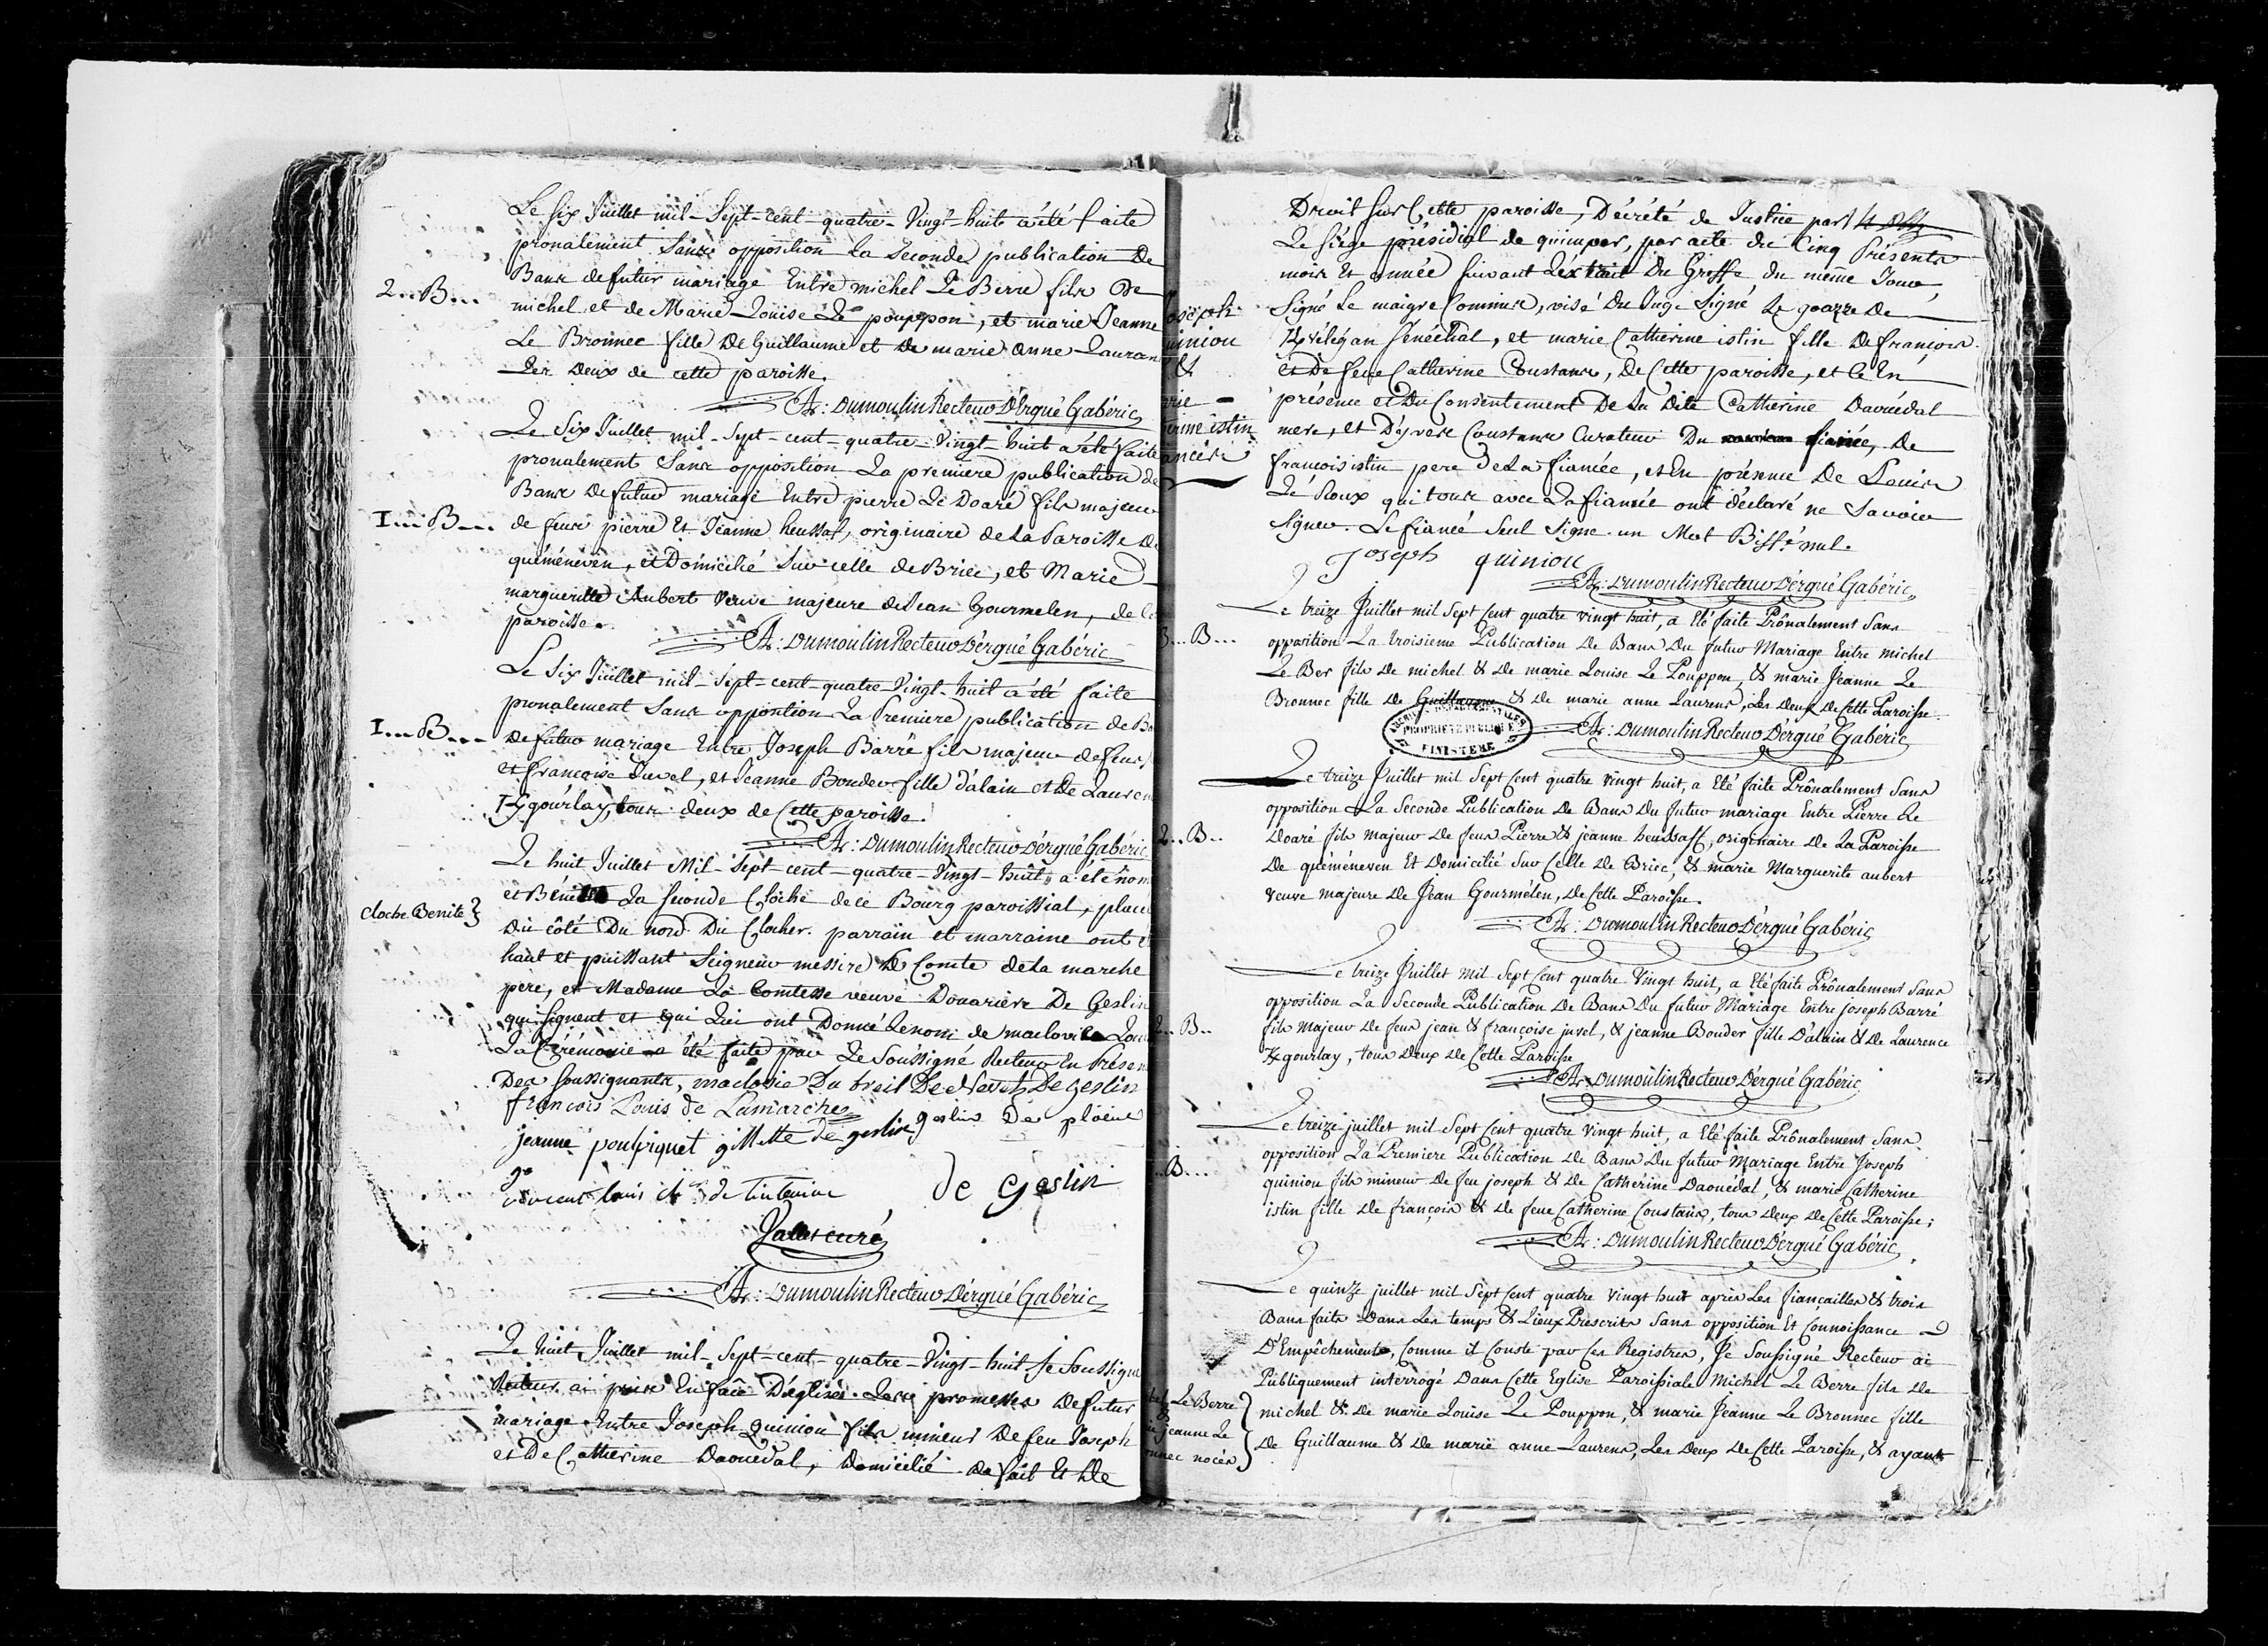 Le six Juillet mil-Sept-cent quatre-Vingt-huit a été faite
pronalement Sans opposition La Seconde publication De
2..B... Bans de futur mariage Entre michel Le Berre fils De
michel et de Marie-Louise Le pouppon, et marie Jeanne
Le Bronnec fille De Guillaume et de marie Anne Lauran
Les Deux de cette paroisse.
A: Dumoulin Recteur D'Ergué Gabéric
Le Six Juillet mil-Sept-cent-quatre-Vingt huit a été faite
pronalement Sans opposition La premiere publication de
Bans De futur mariage Entre pierre Le Doaré fils majeur
1...B... de feus pierre Et Jeanne heussaf, originaire de La Paroisse De
quéménéven, et Domicilié Sur celle de Briec, et Marie
marguerite Aubert Veuve majeure de Jean Gourmelen, de
paroisse.
A: Dumoulin Recteur D'ergué Gabéric
Le Six Juillet mil-Sept-cent quatre-Vingt-huit a été faite
pronalement Sans opposition La Premiere publication de
1...B... De futur mariage Entre Joseph Barré fils majeur de feus
et françoise Juvel, et Jeanne Bonder fille d'alain et De Lauren
Kgourlay, tous deux de Cette paroisse.
A: Dumoulin Recteur D'ergué Gabéric
Le huit Juillet Mil-Sept-cent-quatre-Vingt-huit, a été nom
et Bénite La Seconde Cloche de ce Bourg paroissial, place
Cloche Benite
Du côté Du nord Du Clocher. parrain et marraine ont
haut et puissant Seigneur messire Le Comte de La marche
pere, et Madame La Comtesse veuve Douariere De Geslin
qui signent et qui Lui ont Donné Le nom de maclovie Lou
La Cérémonie a été faite par Le Soussigné Recteur En Presen
Des Soussignants, maclovie Du breil De Nevet De geslin
françois Louis de Lamarche
jeanne poulpiquet gillette de geslin geslin De ploeuc
vincent louis de tinteniac de Geslin
curé
A: Dumoulin Recteur D'ergué Gabéric
Le huit Juillet mil-Sept-cent-quatre-Vingt-huit Je Soussigné
Recteur ai pris En face D'église Les promesses De futur
mariage Entre Joseph Quiniou fils mineur De feu Joseph
et De Catherine Daouédal, Domicilié De fait Et De
Droit Sur Cette paroisse, Décrété de Justice par
Le Siége présidial de quimper, par acte du Cinq Présents
oseph
uiniou
&
rie
rine istin
ancés
mois Et année Suivant L'extrait Du Greffe du même Jour,
Signé Le maigre Commis, visé Du Juge Signé Le goazre De
Kvélégan Sénéchal, et marie Catherine istin fille De françois
et De feue Catherine Coustans, De Cette paroisse, et ce En
présence et Du Consentement De La Dite Catherine Daouédal
mere, et D'yves Coustans Curateur Du fiancé, De
françois istin pere De La fiancée, et En présence De Louis
Le Roux qui tous avec La fiancée ont déclaré ne Savoir
Signer. Le fiancé Seul Signe. un Mot Biffé nul.
Joseph quiniou
A: Dumoulin Recteur D'ergué Gabéric
Le treize Juillet mil Sept Cent quatre vingt huit, a Eté faite Prônalement Sans
3...B... opposition La troisieme Publication De Bans Du futur Mariage Entre michel
Le Ber fils De michel & De marie Louise Le Pouppon, & marie Jeanne Le
Bronnec fille De Guillaume & De marie anne Laurens, Les Deux De Cette Paroisse.
ARCHIVES DEPARTEMENTALES
PROPRIETE PUBLIQUE
FINISTERE
A: Dumoulin Recteur D'ergué Gabéric
Le treize Juillet mil Sept Cent quatre vingt huit, a Eté faite Prônalement Sans
opposition La Seconde Publication De Bans Du futur mariage Entre Pierre Le
2..B.. Doaré fils majeur De feus Pierre & jeanne heussaff, originaire De La Paroisse
De quéménéven Et Domicilié Sur Celle De Briec, & marie Marguerite aubert
veuve majeure De Jean Gourmélen, De Cette Paroisse.
A: Dumoulin Recteur D'ergué Gabéric
Le treize Juillet mil Sept Cent quatre Vingt huit, a Eté faite Prônalement Sans
opposition La Seconde Publication De Bans Du futur Mariage Entre Joseph Barré
2..B.. fils majeur De feus jean & françoise juvel, & jeanne Bonder fille D'alain & De Laurence
Kgourlay, tous Deux De Cette Paroisse
A: Dumoulin Recteur D'ergué Gabéric
Le treize juillet mil Sept Cent quatre vingt huit, a Eté faite Prônalement Sans
opposition La Premiere Publication De Bans Du futur Mariage Entre Joseph
..B... quiniou fils mineur De feu joseph & De Catherine Daouédal, & marie Catherine
istin fille De françois & De feue Catherine Coustans, tous Deux De Cette Paroisse;
A: Dumoulin Recteur D'ergué Gabéric
Le quinze juillet mil Sept Cent quatre vingt huit après Les fiançailles & trois
Bans faits Dans Les temps & Lieux Prescrits Sans opposition Et Connoissance
D'Empêchements, Comme il Conste par Ces Registres, Je Soussigné Recteur ai
Publiquement interrogé Dans Cette Eglise Paroissiale Michel Le Berre fils De
Le Berre
michel & De marie Louise Le Pouppon, & marie Jeanne Le Bronnec fille
jeanne Le
De Guillaume & De marie anne Laurens, Les Deux De Cette Paroisse, & ayant
nnec nocés